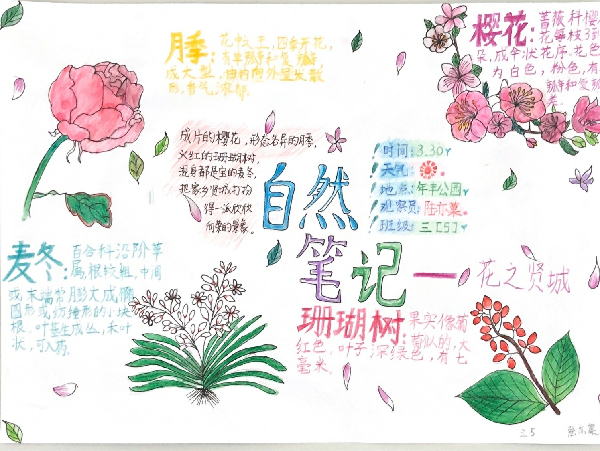 月季:
花较大,四季开花,
成大型,由内向外呈发散
形,香气浓郁
樱花:
蔷薇科樱
花每枝3到
朵,成伞状花序,花色
为白色,粉色,有
类.
成片的樱花,形态各异的月季,
火红的珊瑚树,
浑身都是宝的麦冬,
把家乡贤城打扮
得一派欣欣
向荣的景象。
时间:3.30
天气:
地点:年丰公园
观察员:陆亦菓
班级:三[5]
自然
笔记一花之贤城
麦冬:
百合科沿阶草
属,根较粗,中间
或末端常膨大成椭
圆形或纺锤形的小块
根.叶基生成丛,禾叶
状,可入药.
珊瑚树:
果实像葡
萄似的,大
红色,叶子深绿色,有七
毫米.
三5